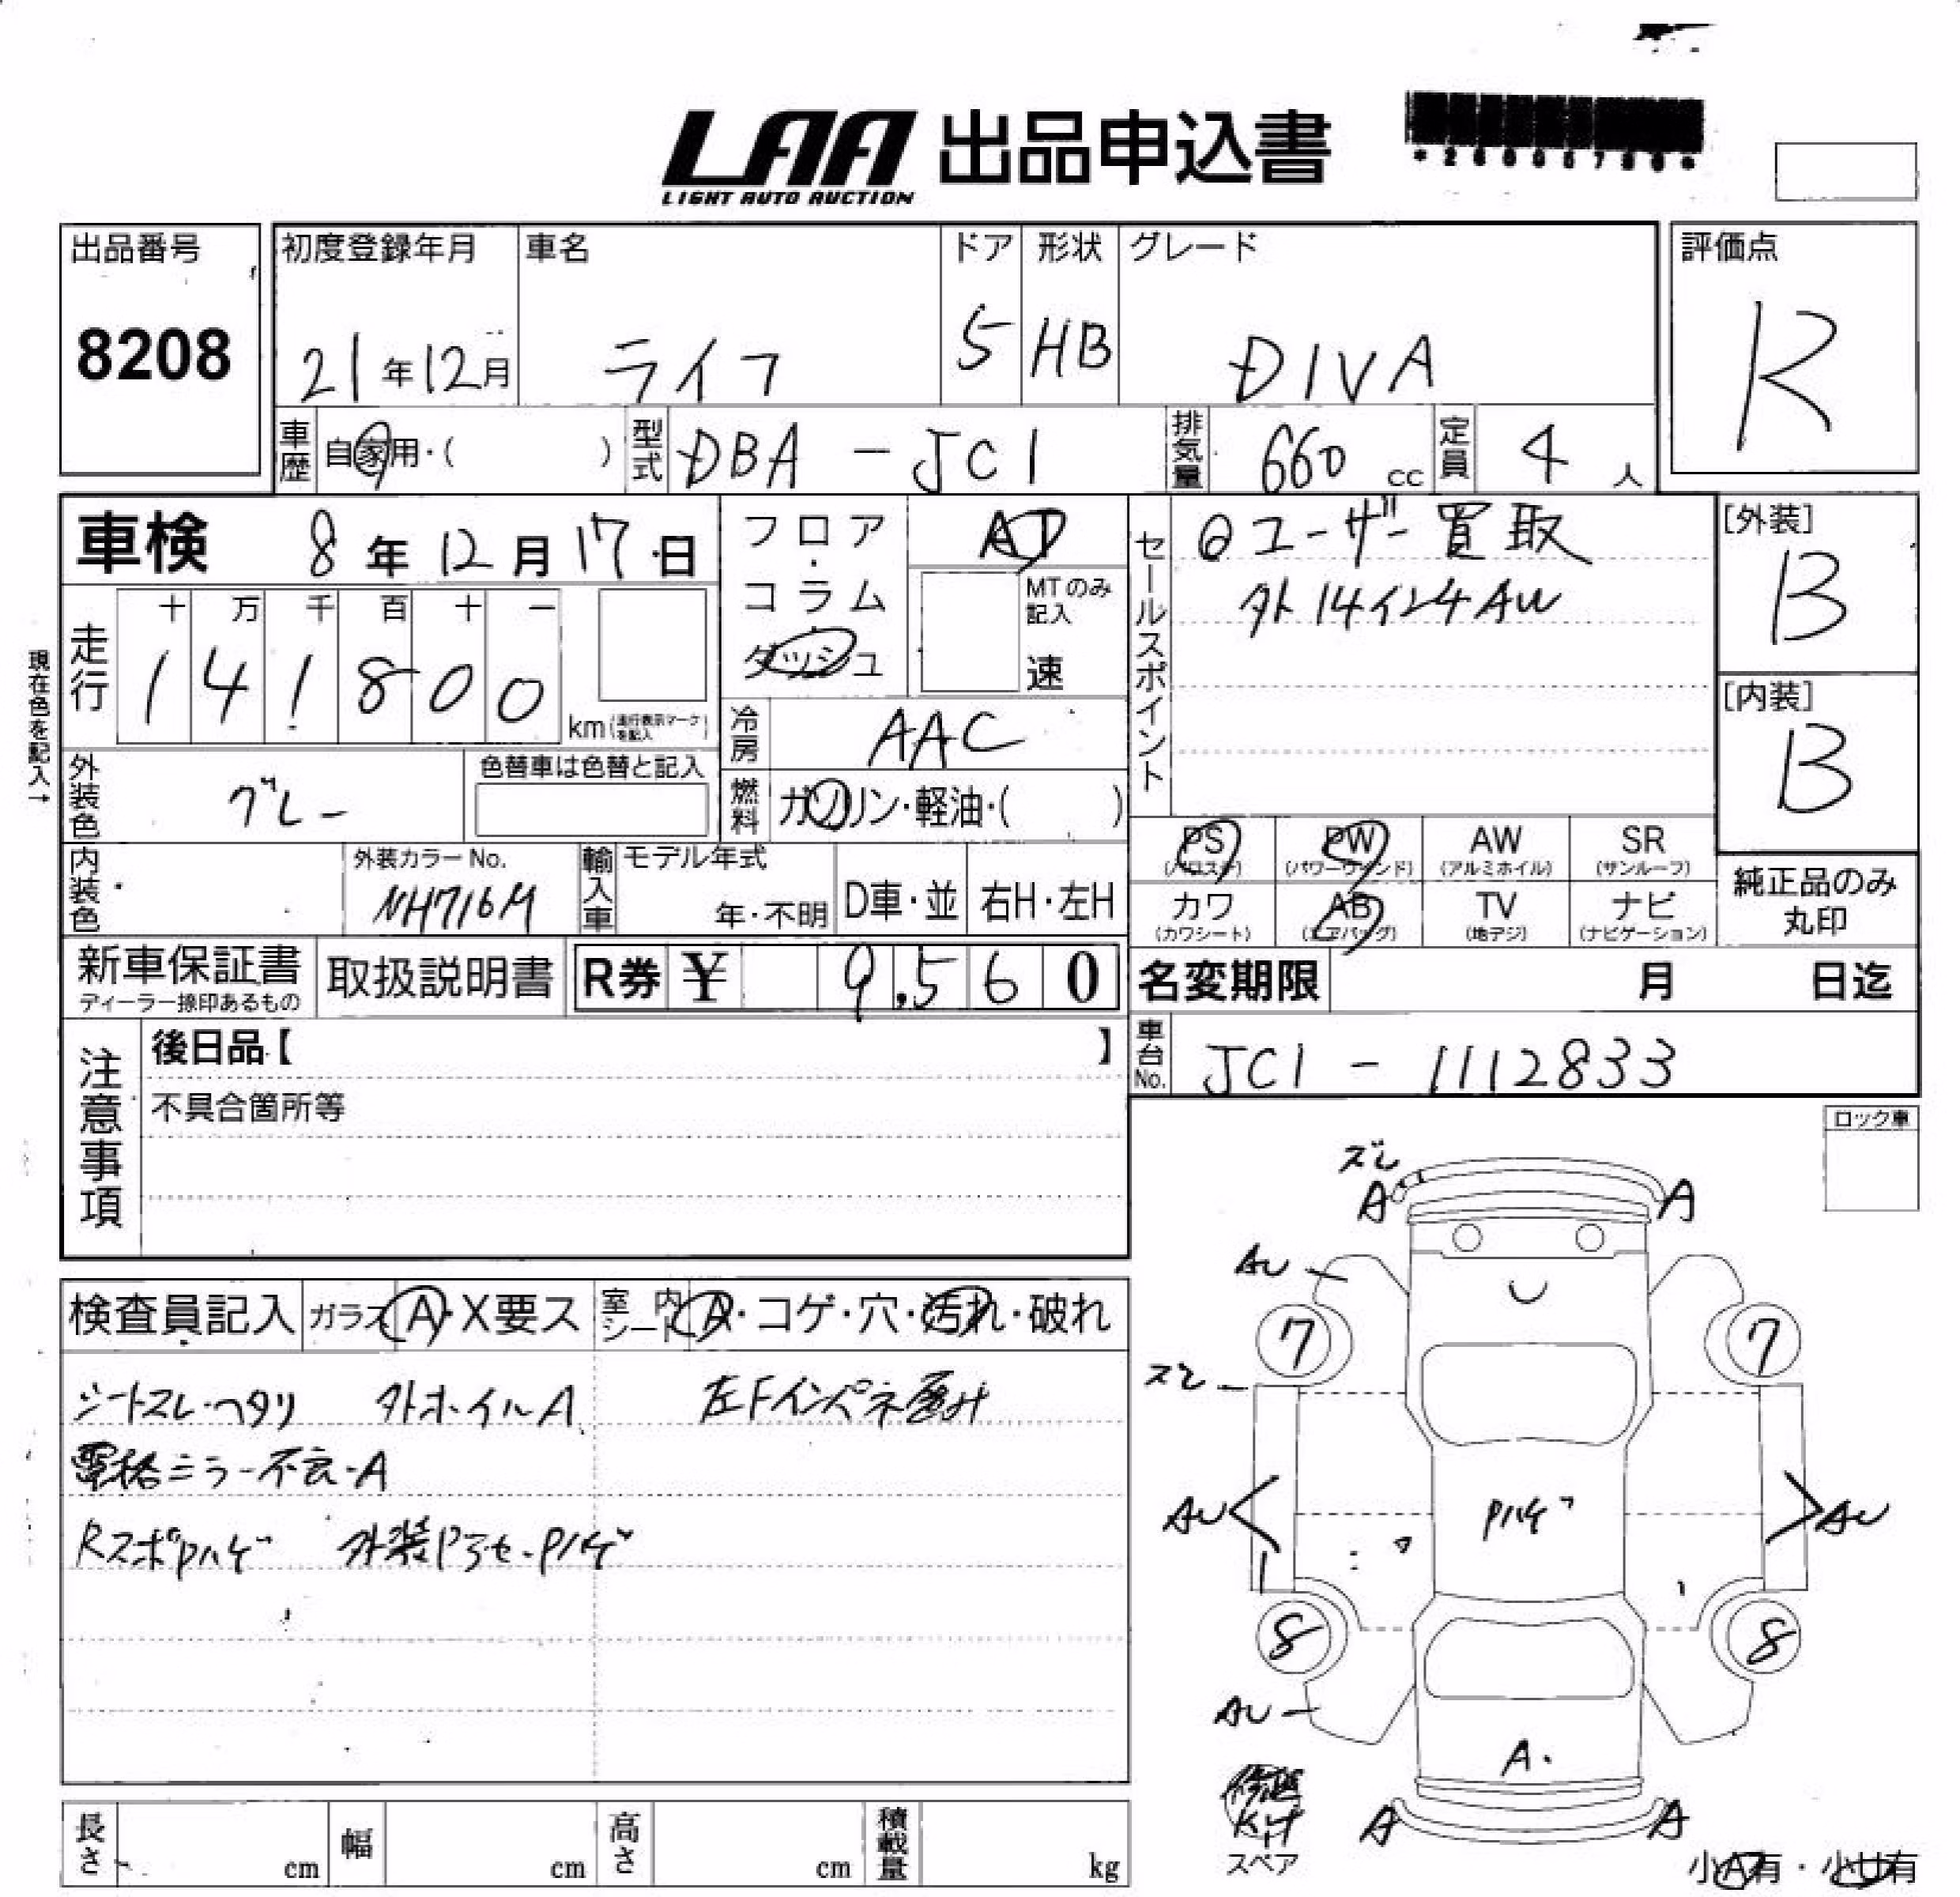 LAA 出品申込書
LIGHT AUTO AUCTION
出品番号
8208
初度登録年月
21年12月
車名
ライフ
ドア
5
形状
HB
グレード
DIVA
評価点
R
車歴 自家用・( )
型式 DBA - JC1
排気量 660 cc
定員 4 人
車検 8年12月17日
フロア・コラム・ダッシュ
AT
MTのみ記入
速
現在色を記入→
走行
十 万 千 百 十 一
1 4 1 8 0 0
km(走行表示マークを記入)
冷房 AAC
燃料 ガソリン・軽油・( )
外装色 グレー
色替車は色替と記入
内装色
外装カラーNo.
NH716M
輸入車
モデル年式
年・不明
D車・並
右H・左H
セールスポイント
ユーザー買取
外14インチAW
[外装]
B
[内装]
B
PS (パワステ)
PW (パワーウインド)
AW (アルミホイル)
SR (サンルーフ)
カワ (カワシート)
AB (エアバッグ)
TV (地デジ)
ナビ (ナビゲーション)
純正品のみ
丸印
新車保証書
ディーラー捺印あるもの
取扱説明書
R券 ¥ 9,560
名変期限 月 日迄
車台No. JC1 - 1112833
注意事項
後日品【 】
不具合箇所等
ロック車
検査員記入
ガラス A・X要ス
室内シート A・コゲ・穴・汚れ・破れ
シートスレ・ヘタリ 外ホイルA 左Fインパネ歪み
電格ミラー不良・A
RスポPハゲ 外装Pヤセ・Pハゲ
ズレ
A A
AU
7 7
ズレ
AU AU
Pハゲ
8 8
AU
A
A A
スペア
小A有・小U有
長さ cm
幅 cm
高さ cm
積載量 kg